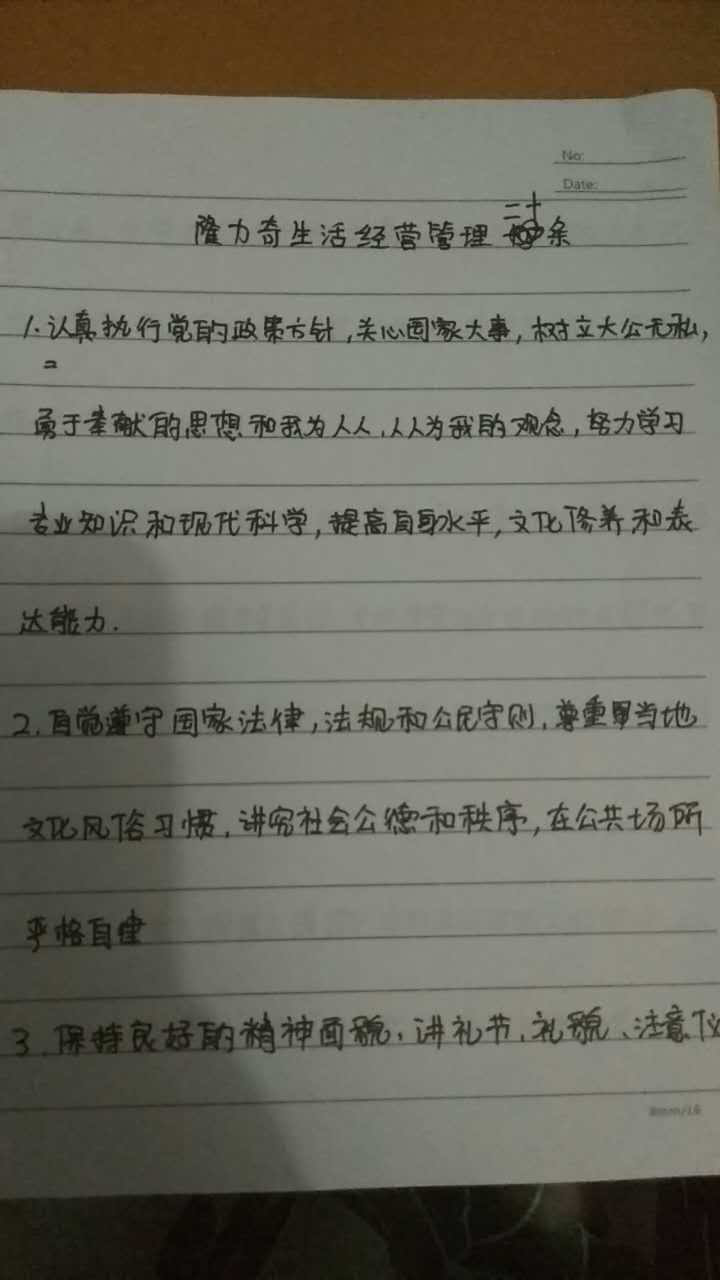 No:
Date:
隆力奇生活经营管理二十条
1.认真执行党的政策方针,关心国家大事,树立大公无私,
勇于奉献的思想和我为人人,人人为我的观念,努力学习
专业知识和现代科学,提高自身水平,文化修养和表
达能力.
2.自觉遵守国家法律,法规和公民守则,尊重当地
文化风俗习惯,讲究社会公德和秩序,在公共场所
严格自律
3.保持良好的精神面貌,讲礼节,礼貌、注意仪
8mm/16